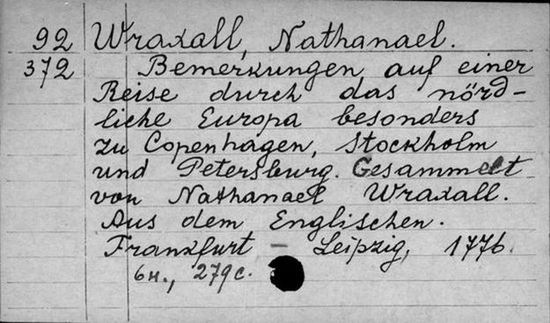 92 Wraxall, Nathanael.
372 Bemerkungen auf einer
Reise durch das nörd-
liche Europa besonders
zu Copenhagen, Stockholm
und Petersburg. Gesammelt
von Nathanael Wraxall.
Aus dem Englischen.
Frankfurt - Leipzig, 1776.
6н., 279с.